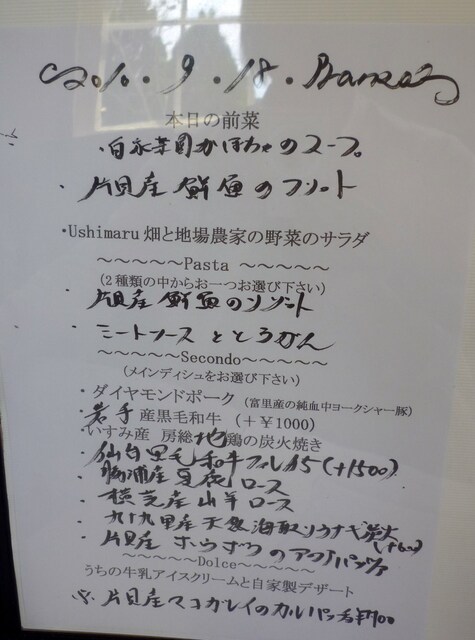 2010.9.18.Pranzo
本日の前菜
・自家菜園かぼちゃのスープ。
・片貝産 鮮魚のフリット
・Ushimaru 畑と地場農家の野菜のサラダ
～～～～～Pasta ～～～～～
(2種類の中からお一つお選び下さい)
・片貝産 鮮魚のリゾット
・ミートソース ととうがん
～～～～～Secondo～～～～～
(メインディシュをお選び下さい)
・ダイヤモンドポーク (富里産の純血中ヨークシャー豚)
・岩手産黒毛和牛 (+￥1000)
いすみ産 房総地鶏の炭火焼き
・仙台黒毛和牛フィレA5(+1500)
・勝浦産 ロース
・横芝産 山羊ロース
・九十九里産天然海取りウナギ炭火
・片貝産 ホウボウのアクアパッツァ
～～～～～Dolce～～～～～
うちの牛乳アイスクリームと自家製デザート
片貝産マコガレイのカルパッチョ¥700